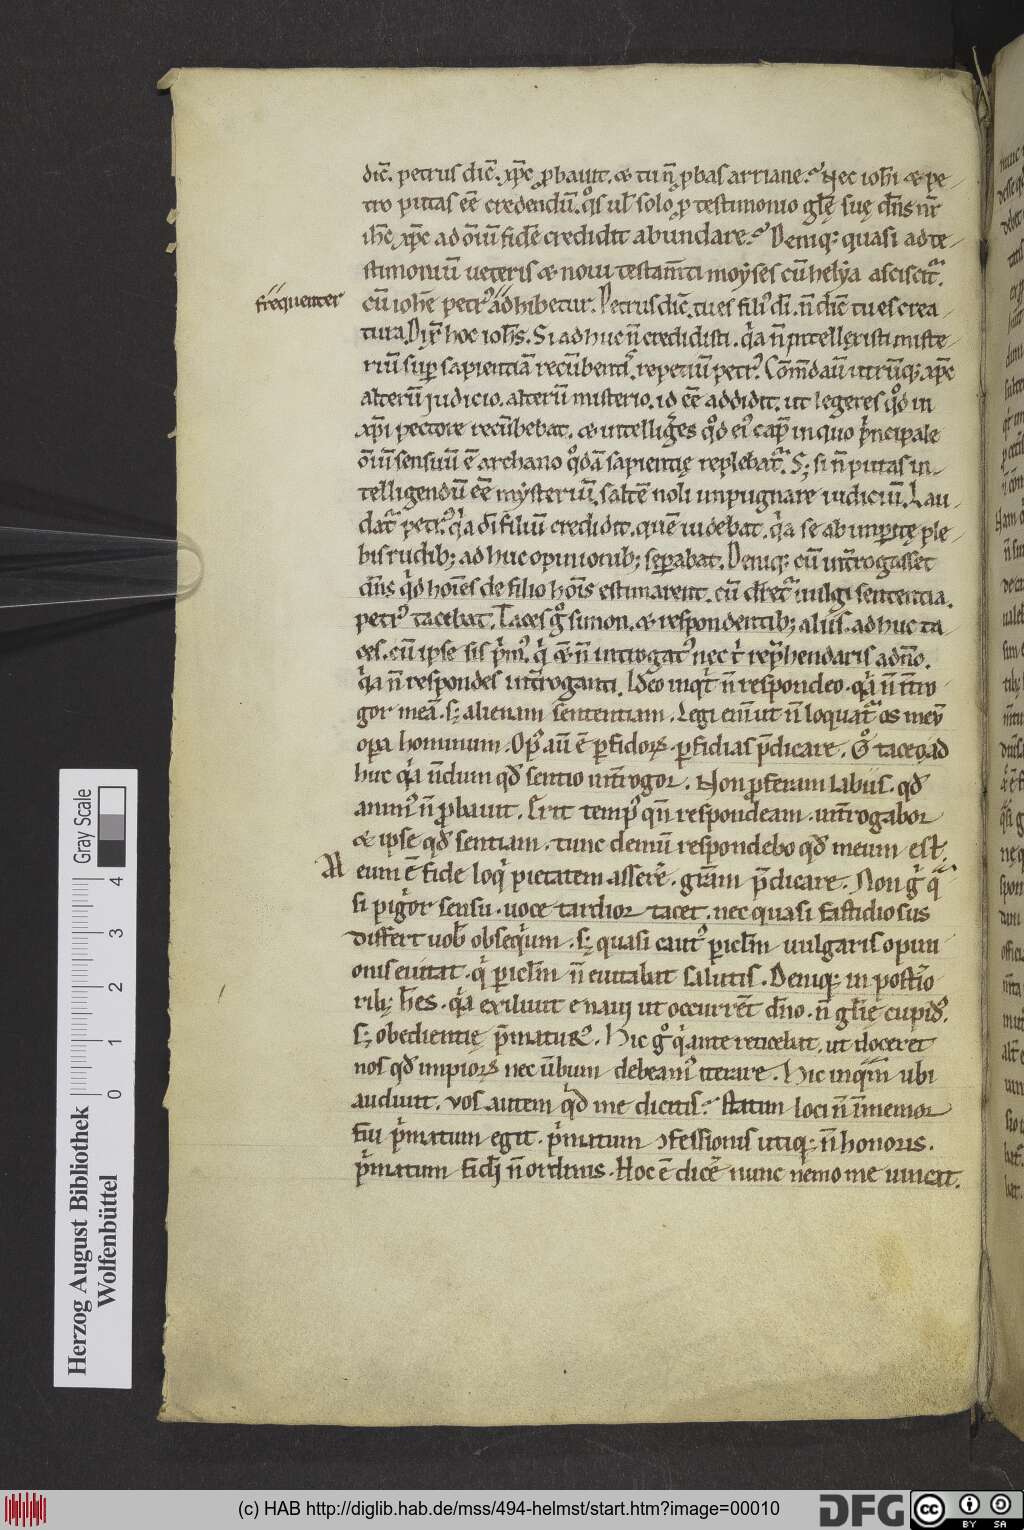 dic̄. petrus dic̄. xp̄c ꝓbauit. & tu n̄ ꝓbas arriane. Nec ioh̄i & pe-
tro putas eē credendū. qͦs ul' solo ꝓ testimonio gl̄ę suę dn̄s nr̄
ih̄c xp̄c ad om̄iū fidē credidit abundare. Deniq; quasi ad te-
stimoniū ueteris & noui testam̄ti moẏses cū helẏa asciscit᷑.
frequenter
cū ioh̄e petr᷒ adhibetur. Petrus dic̄. tu es fili᷒ dī. n̄ dic̄ tu es crea-
tura. Dix̄ hoc ioh̄s. Si adhuc n̄ credidisti. qͣa n̄ intellexisti miste-
riū suꝑ sapientiā recūbentis. repetiū petr᷒. Cōm̄daū utrūq; xp̄c
alterū judicio. alterū misterio. id eē addidit. ut legeres qͦd in
xp̄i pectore recūbebat. & intelliḡes qͦd ei᷒ cap̄ in quo pͥncipale
om̄iū sensuū ē archano qͦdā sapientię replebat᷑. S; si n̄ putas in-
telligendū eē mẏsteriū. saltē noli inpugnare iudiciū. Lau-
dat᷑ petr᷒ qͥa dī filiū credidit. quē uidebat. qͥa se ab inꝑitę ple-
bis rudib; adhuc opinionib; seꝑabat. Deniq; cū int̄rogasset
dn̄s qͥd hoīes de filio hoīs estimarent. cū dicet᷑ uulgi sententia.
petr᷒ tacebat. Taces gͦ simon. & respondentib; aliis. adhuc ta-
ces. cū ipse sis pͥm᷒. qͥ & n̄ introgat᷒ nec tͥ rep̄hendaris a dn̄o.
qͥa n̄ respondes int̄roganti. Ideo inqͥt n̄ respondeo. qͥa n̄ int̄ro-
gor meā. s; alienam sententiam. Legi enī ut n̄ loquat᷑ os meū
oꝑa hominum. Op᷒ aū ē ꝑfidoꝝ. ꝑfidias p̄dicare. Gͦ taceo ad
huc qͥa n̄dum qd̄ sentio int̄rogor. Non ꝓferam labiis. qd̄
anim᷒ n̄ ꝓbauit. Erit temp᷒ qn̄ respondeam. int̄rogabor
& ipse qd̄ sentiam. tunc demū respondebo qd̄ meum est.
Meum ē fide loqͥ pietatem asserē. gr̄am p̄dicare. Non gͦ qͣ
si pigͥor sensu. uoce tardior tacet. nec quasi fastidiosus
differt uob̄ obseqͥum. s; quasi caut᷒ ꝑicl̄m uulgaris opini-
onis euitat. qͥ ꝑicl̄m n̄ euitabit salutis. Deniq; in post̄io
rib; h̄es. qͥa exiliuit e naui ut occurrēt dn̄o. n̄ gl̄ię cupid᷒.
s; obedientię p̄matur᷒. Hic gͦ qͥ ante reticebat. ut doceret
nos qd̄ impioꝝ nec ūbum debeam᷒ iterare. Hic inqͣm ubi
audiuit. vos autem qͥd me dicitis? statim loci n̄ im̄memor
sui pͥmatum egit. pͥmatum ꝯfessionis utiq; n̄ honoris.
pͥmatum fidi n̄ ordinis. Hoc ē dicē nunc nemo me uincit.
Herzog August Bibliothek
Wolfenbüttel
Gray Scale
0 1 2 3 4
(c) HAB http://diglib.hab.de/mss/494-helmst/start.htm?image=00010
DFG
cc BY SA